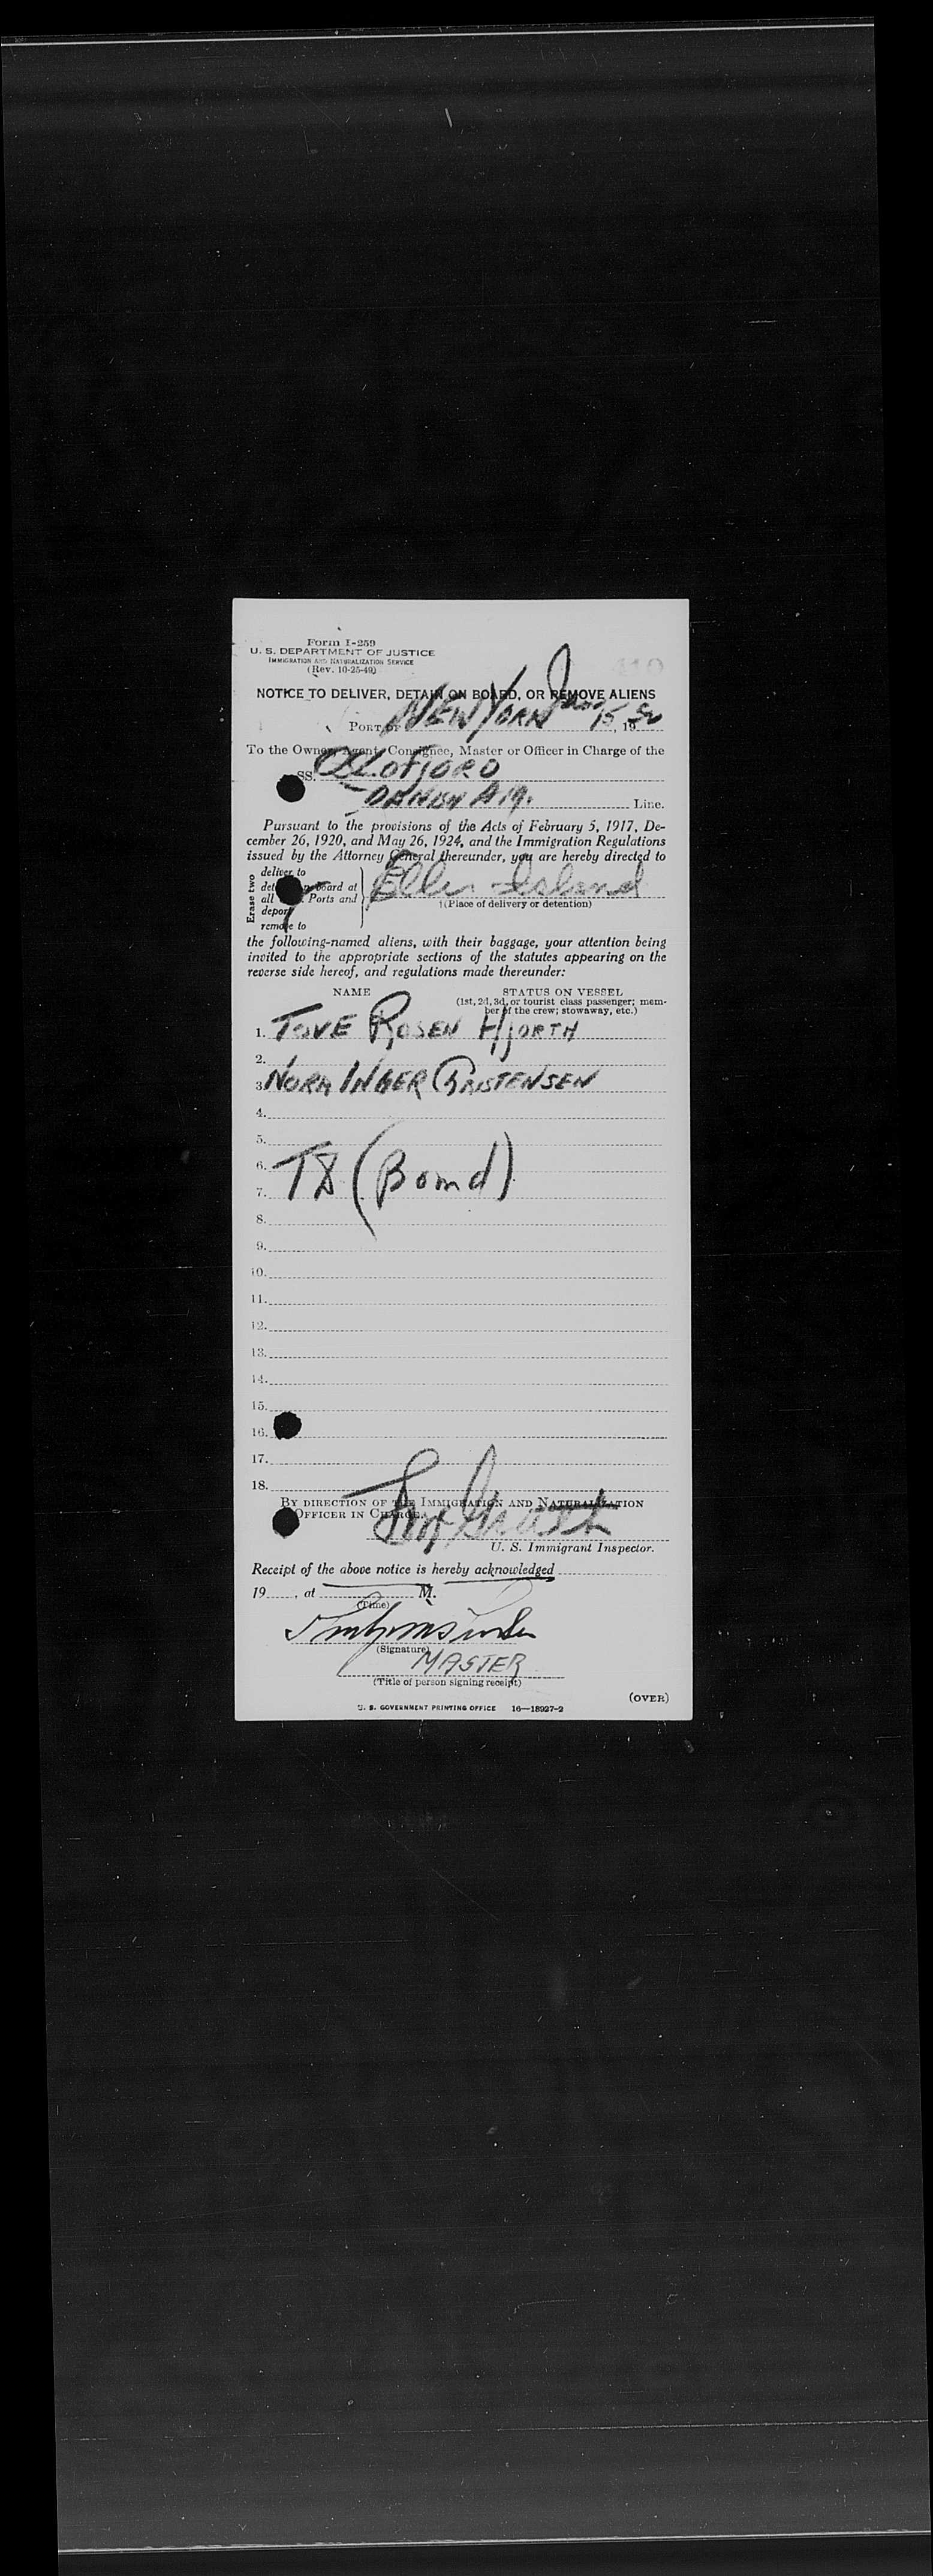 Form I-259
U. S. DEPARTMENT OF JUSTICE
IMMIGRATION AND NATURALIZATION SERVICE
(Rev. 10-25-49)
110
NOTICE TO DELIVER, DETAIN ON BOARD, OR REMOVE ALIENS
PORT OF NEW YORK 15, 1950
To the Owner, Agent, Consignee, Master or Officer in Charge of the
SS. OSLOFJORD
Line.
Pursuant to the provisions of the Acts of February 5, 1917, De-
cember 26, 1920, and May 26, 1924, and the Immigration Regulations
issued by the Attorney General thereunder, you are hereby directed to
Erase two
deliver to
board at
all Ports and
deport
remove to
Ellis Island
(Place of delivery or detention)
the following-named aliens, with their baggage, your attention being
invited to the appropriate sections of the statutes appearing on the
reverse side hereof, and regulations made thereunder:
NAME STATUS ON VESSEL
(1st, 2d, 3d, or tourist class passenger; mem-
ber of the crew; stowaway, etc.)
1. TOVE ROSEN HJORTH
2.
3. NORA INGER KRISTENSEN
4.
5.
6. (Bond)
7.
8.
9.
10.
11.
12.
13.
14.
15.
16.
17.
18.
BY DIRECTION OF THE IMMIGRATION AND NATURALIZATION
OFFICER IN CHARGE.
U. S. Immigrant Inspector.
Receipt of the above notice is hereby acknowledged
19 , at M.
(Time)
(Signature)
MASTER
(Title of person signing receipt)
(OVER)
U. S. GOVERNMENT PRINTING OFFICE 16—18927-2